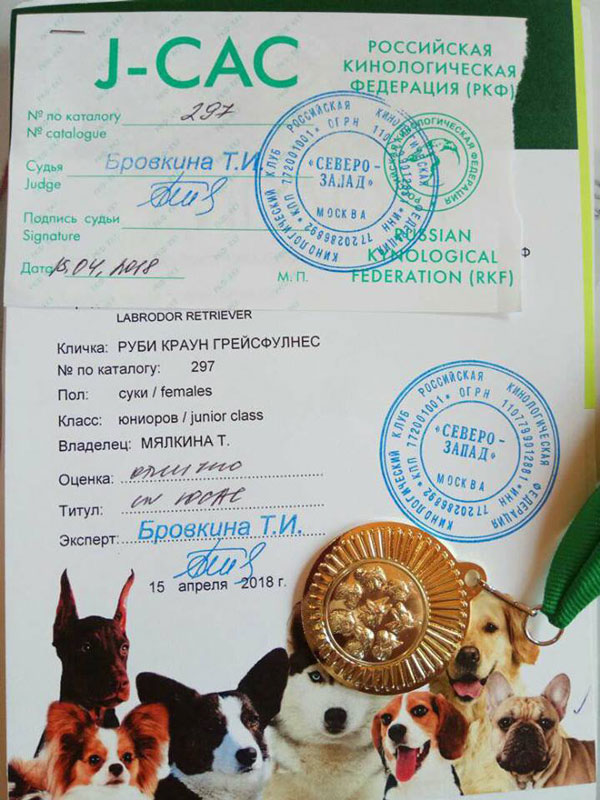 J-CAC
РОССИЙСКАЯ
КИНОЛОГИЧЕСКАЯ
ФЕДЕРАЦИЯ (РКФ)
№ по каталогу 297
№ catalogue
Судья Бровкина Т.И.
Judge
Подпись судьи
Signature
Дата 15.04.2018
М. П.
RUSSIAN
KYNOLOGICAL
FEDERATION (RKF)
РОССИЙСКАЯ КИНОЛОГИЧЕСКАЯ ФЕДЕРАЦИЯ
КИНОЛОГИЧЕСКИЙ КЛУБ
КПП 772001001 * ОГРН
ИНН 7720286892
«СЕВЕРО-
ЗАПАД»
МОСКВА
Ф
LABRODOR RETRIEVER
Кличка: РУБИ КРАУН ГРЕЙСФУЛНЕС
№ по каталогу: 297
Пол: суки / females
Класс: юниоров / junior class
Владелец: МЯЛКИНА Т.
Оценка: отлично
Титул: CW ЮСАС
Эксперт: Бровкина Т.И.
15 апреля 2018 г.
КИНОЛОГИЧЕСКИЙ КЛУБ РОССИЙСКАЯ КИНОЛОГИЧЕСКАЯ ФЕДЕРАЦИЯ
КПП 772001001 * ОГРН 1107799012881 * ИНН 7720286892
«СЕВЕРО-
ЗАПАД»
МОСКВА